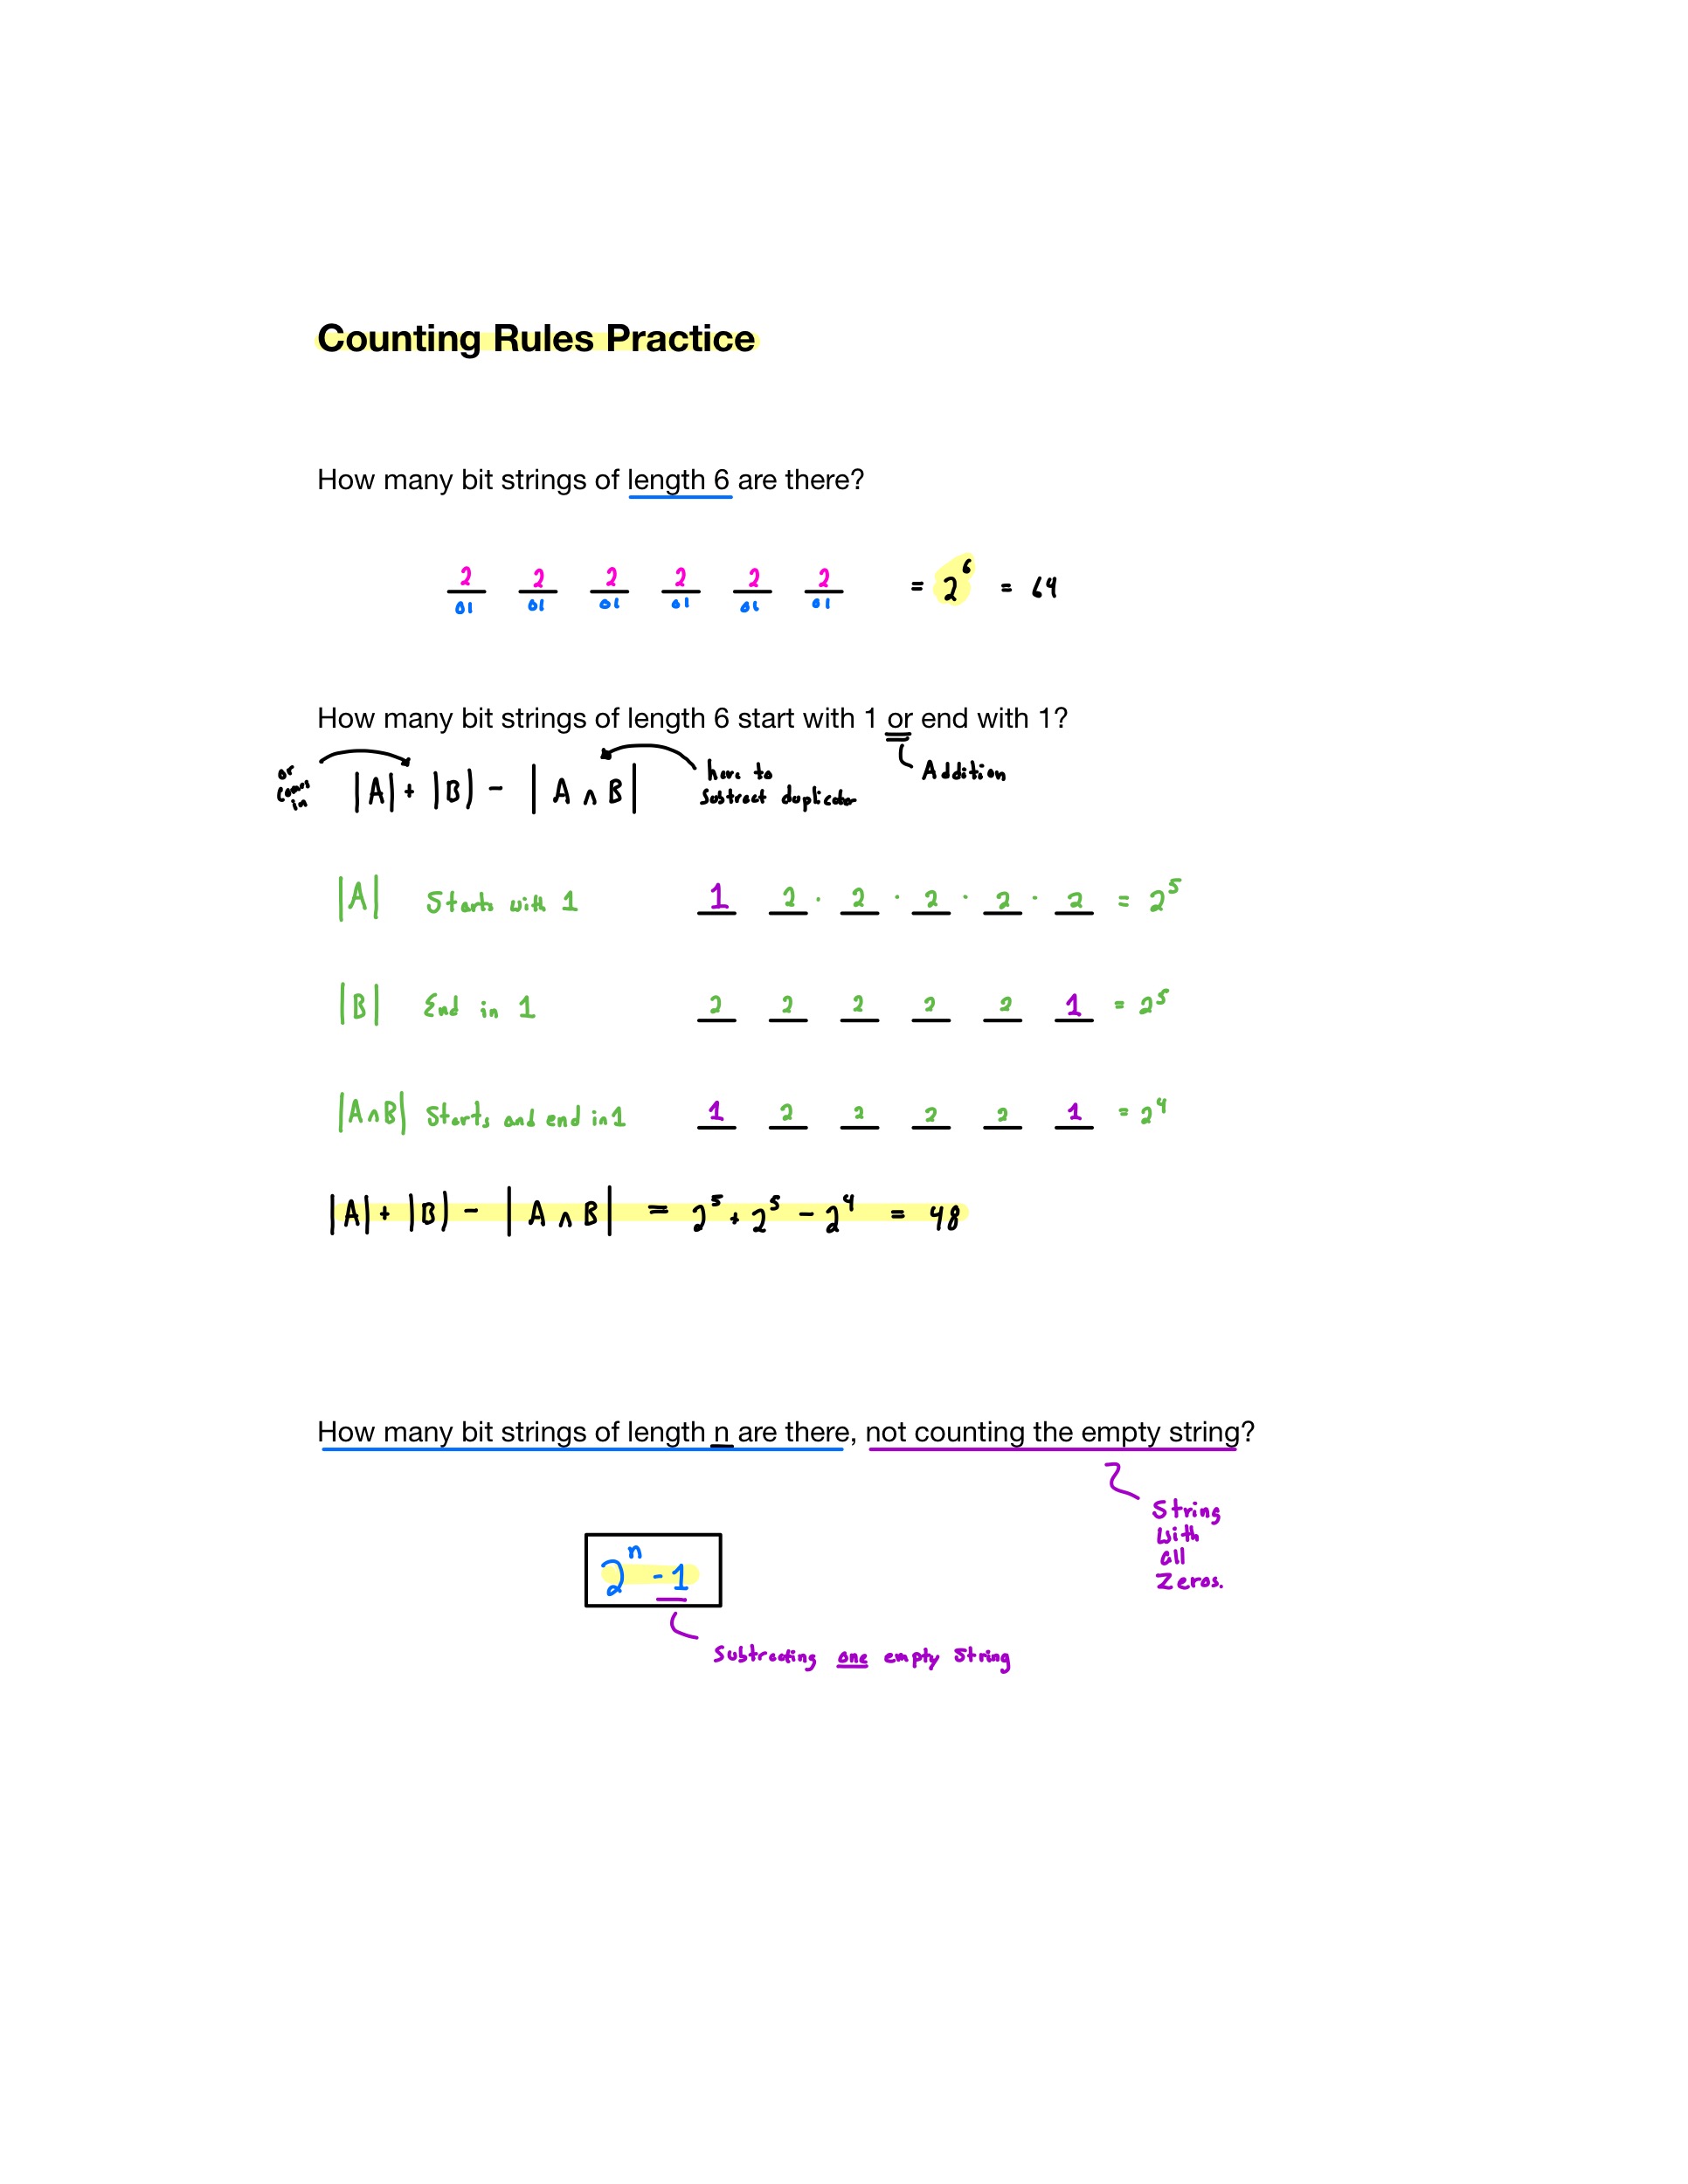 Counting Rules Practice
How many bit strings of length 6 are there?
2 2 2 2 2 2 = 2⁶ = 64
01 01 01 01 01 01
How many bit strings of length 6 start with 1 or end with 1?
Addition
or
comes
in
|A| + |B| - |A ∩ B|
have to
subtract duplicates
|A| Starts with 1 1 2 · 2 · 2 · 2 · 2 = 2⁵
|B| End in 1 2 2 2 2 2 1 = 2⁵
|A∩B| Starts and end in 1 1 2 2 2 2 1 = 2⁴
|A| + |B| - |A ∩ B| = 2⁵ + 2⁵ - 2⁴ = 48
How many bit strings of length n are there, not counting the empty string?
String
with
all
zeros.
2ⁿ - 1
Subtracting one empty string